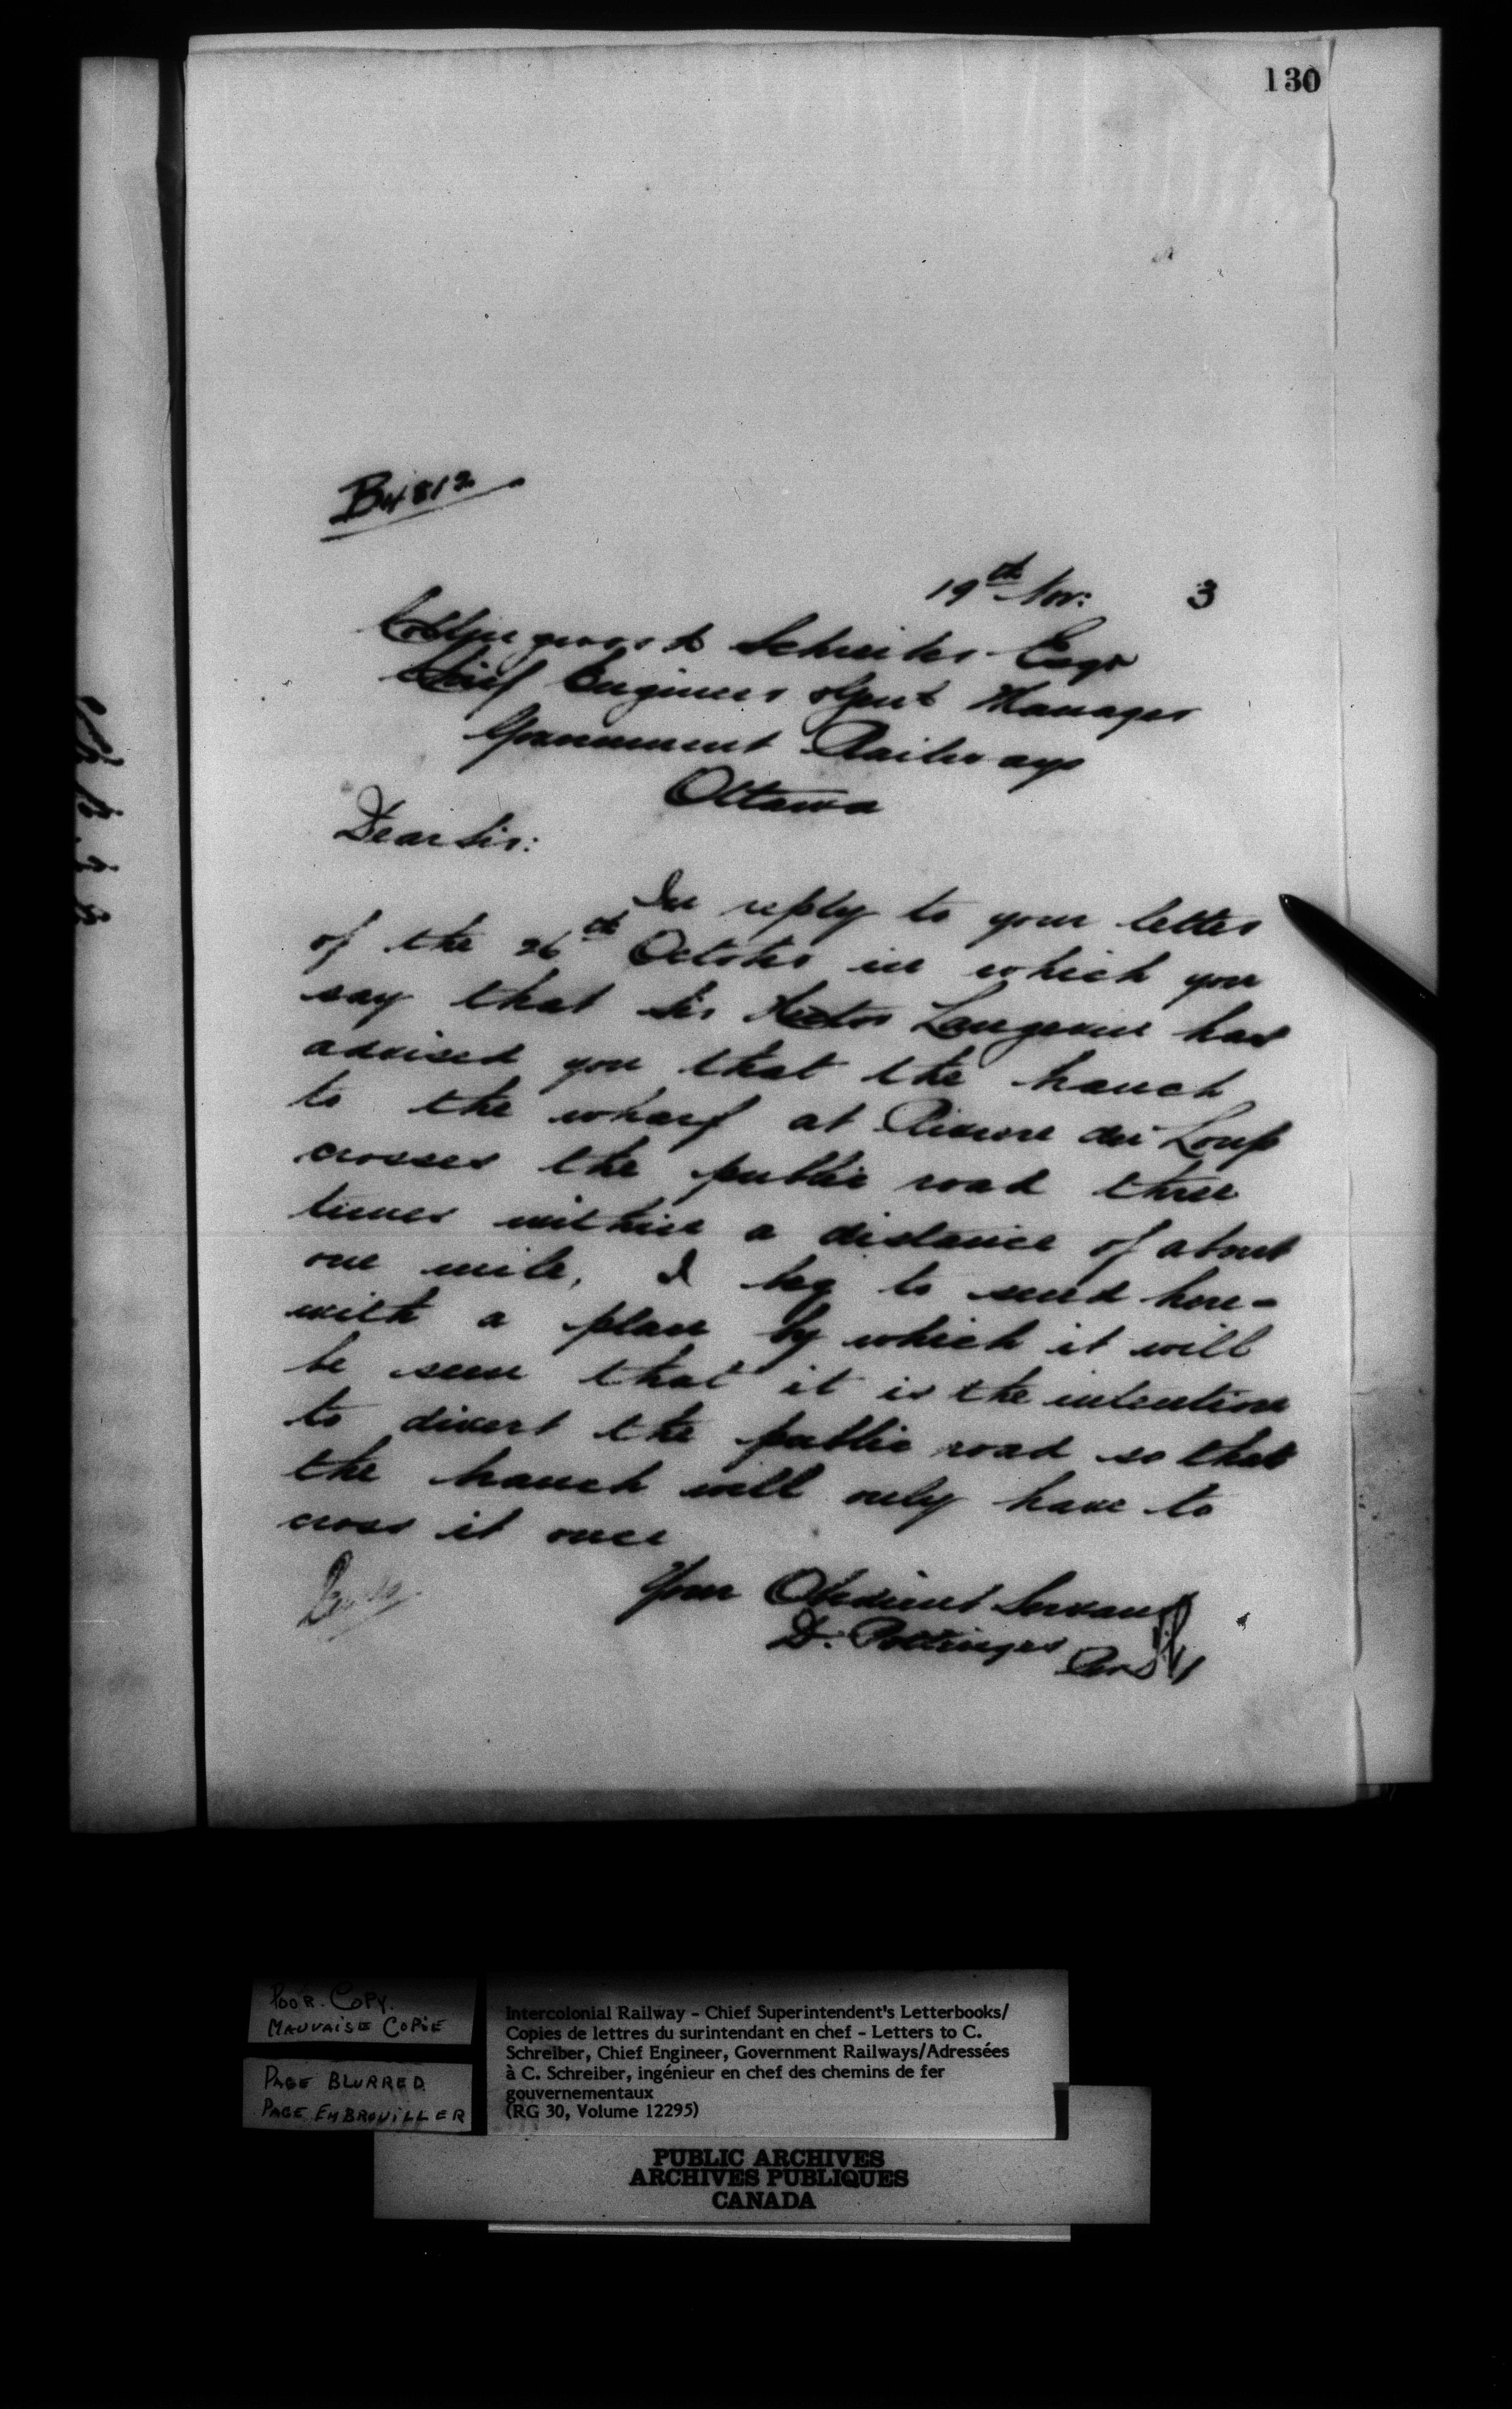 130
B4812
19th Nov: 3
Collingwood Schreiber Esqr
Chief Engineer & Genl Manager
Government Railways
Ottawa
Dear Sir:
In reply to your letter
of the 26th October in which you
say that Sir Hector Langevin has
advised you that the branch
to the wharf at Riviere du Loup
crosses the public road three
times within a distance of about
one mile, I beg to send here-
with a plan by which it will
be seen that it is the intention
to divert the public road so that
the branch will only have to
cross it once
Your Obedient Servant
D. Pottinger
Per
POOR COPY.
MAUVAISE COPIE
PAGE BLURRED
PAGE EMBROUILLER
Intercolonial Railway - Chief Superintendent's Letterbooks/
Copies de lettres du surintendant en chef - Letters to C.
Schreiber, Chief Engineer, Government Railways/Adressées
à C. Schreiber, ingénieur en chef des chemins de fer
gouvernementaux
(RG 30, Volume 12295)
PUBLIC ARCHIVES
ARCHIVES PUBLIQUES
CANADA